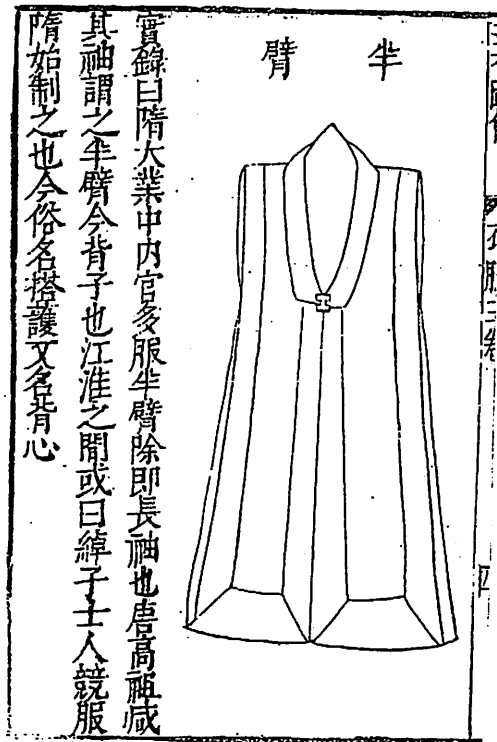 半臂
實錄曰隋大業中內官多服半臂除即長袖也唐高祖减
其袖謂之半臂今背子也江淮之間或曰綽子士人競服
隋始制之也今俗名搭護又名背心